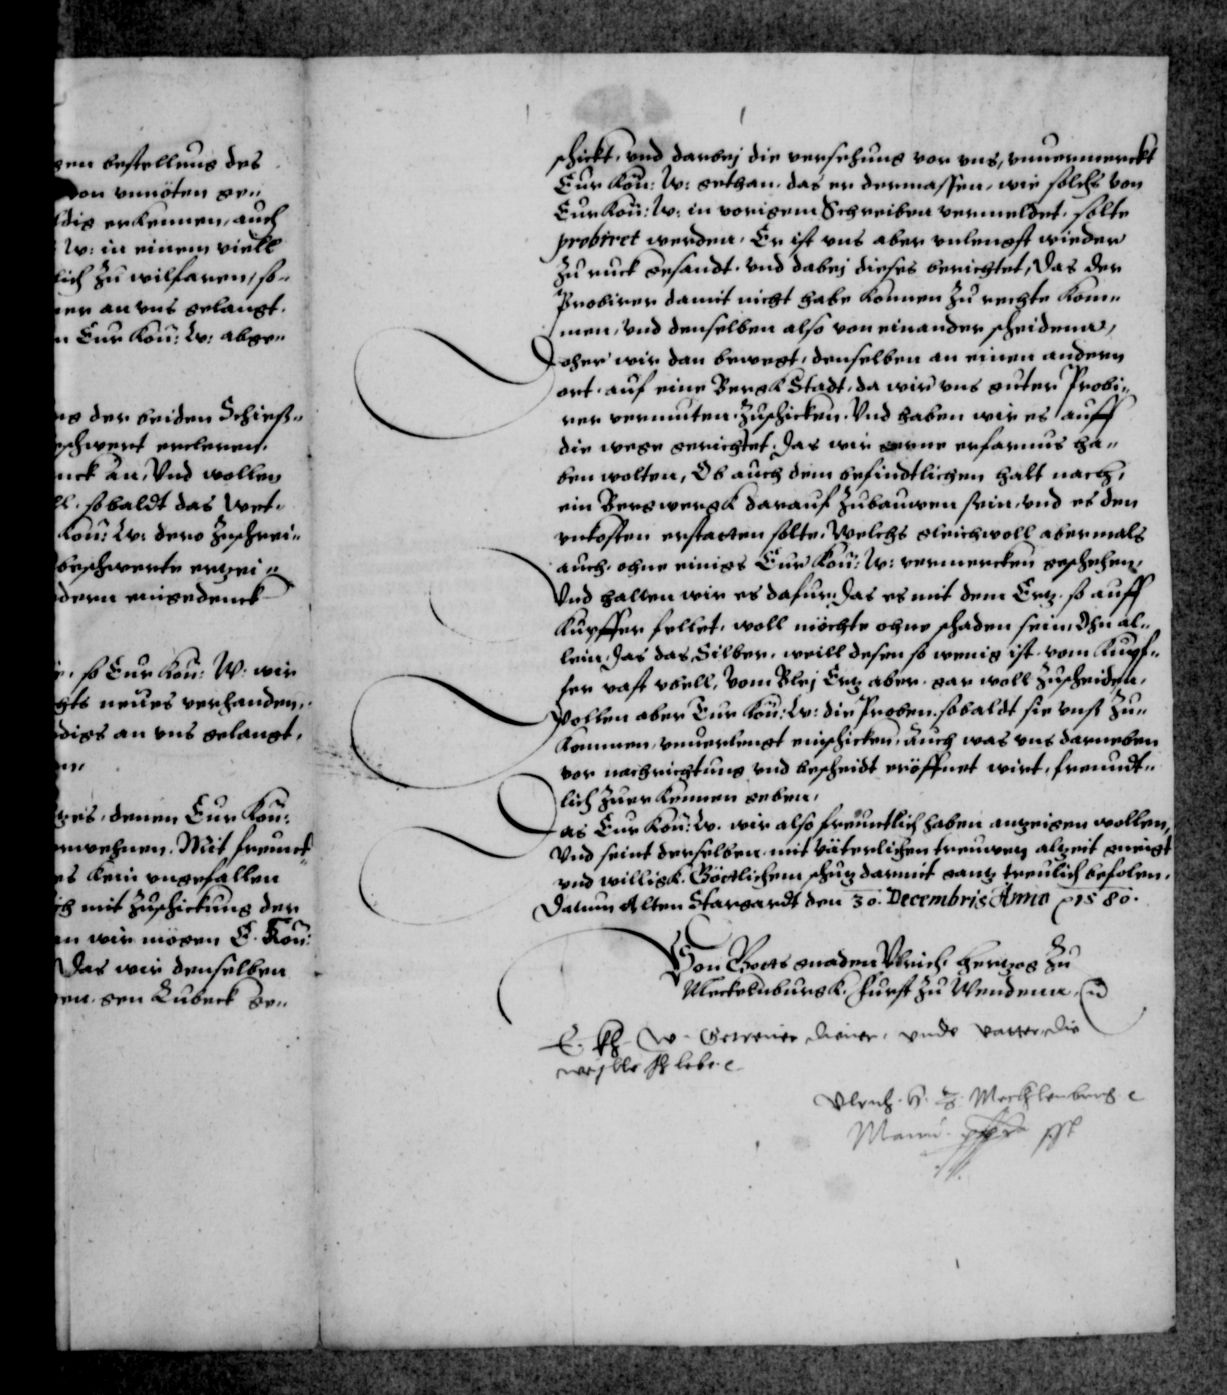 gen bestellung des
von vnnöten ge„
dig erkennen, auch
W: in einem viell
lich zu wilfaren, so„
ner an vns gelangt.
n Eur Kön: W: abge„
ng der beiden Schieß„
eschwert ercleren.
nck an, Vnd wollen
ll. sobaldt das Wet„
Kön: W: dero Zuschrei„
beschwerte erzei„
dern eingedenck
so Eur Kön: W: wir
chts neues verhanden,
digs an vns gelangt,
en,
ges, denen Eur Kön:
erwehnen. Mit freunt„
es kein vngefallen
ich mit zuschickung der
an wir mögen E. Kön:
Das wir denselben
en, gen Lubeck ge„
schickt, vnd darbej die versehung vor vns, vnuermerckt
Eur Kön: W: gethan, das er dermassen, wie solchs von
Eur Kön: W: in vorigem Schreiben vermeldet, solte
probiret werden, Er ist vns aber vnlengst wieder
zu ruck gesandt, vnd dabej dieses berichtet, Das der
Probirer damit nicht habe konnen zu rechte kom„
men, vnd denselben also von einander scheidenn,
Doher wir dan bewegt, denselben an einen andern
ort, auf eine Bergk Stadt, da wir vns guter Probi„
rer vermuten, zuschicken, Vnd haben wir es auff
die wege gerichtet, Das wir gerne erfarnus ha„
ben wolten, Ob auch dem befindtlichen halt nach,
ein Bergwergk darauf zubauwen sein, vnd es den
vnkosten erstatten solte, Welchs gleichwoll abermals
auch, ohne einigs Eur Kön: W: vermercken geschehen,
Vnd halten wir es dafur, Das es mit dem Ertz, so auff
Kupffer fellet, woll möchte ohne schaden sein, Ohn al„
lein, Das das Silber, weill desen so wenig ist, vom Kupf„
fer vast vbell, Vom Blej Ertz aber, gar woll zuscheiden,
Wollen aber Eur Kön: W: die Proben, sobaldt sie vnß zu„
kommen, vnuerlengt einschicken, Auch was vns darneben
vor nachrichtung vnd bescheidt eröffnet wirt, freundt„
lich zuerkennen geben,
Das Eur Kön: W. wir also freuntlich haben anzeigen wollen,
Vnd seint derselben mit väterlichen treuwen alzeit gneigt
vnd willigk. Göttlichem schutz darmit gantz treulich befolen.
Datum Alten Stargardt den 30. Decembris Anno 1580.
Von Gotts gnaden Vlrich, Hertzog zu
Meckelnburgk, Furst zu Wendenn,
E. W. Getreuer diener, vnde vatter, die
weyllе Ich lebe
Vlrich. H. Z. Mechlenberg
Manu